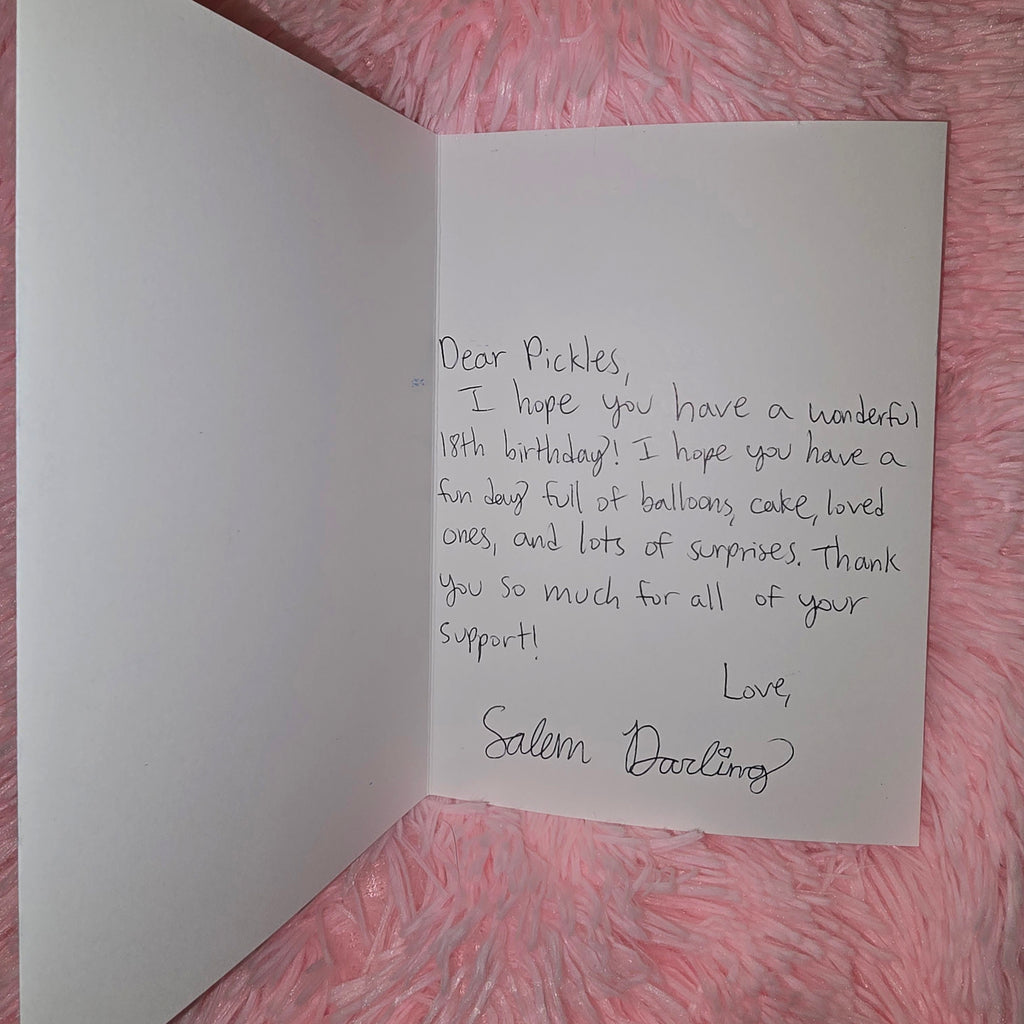 Dear Pickles,
I hope you have a wonderful
18th birthday! I hope you have a
fun day full of balloons, cake, loved
ones, and lots of surprises. Thank
you so much for all of your
support!
Love,
Salem Darling